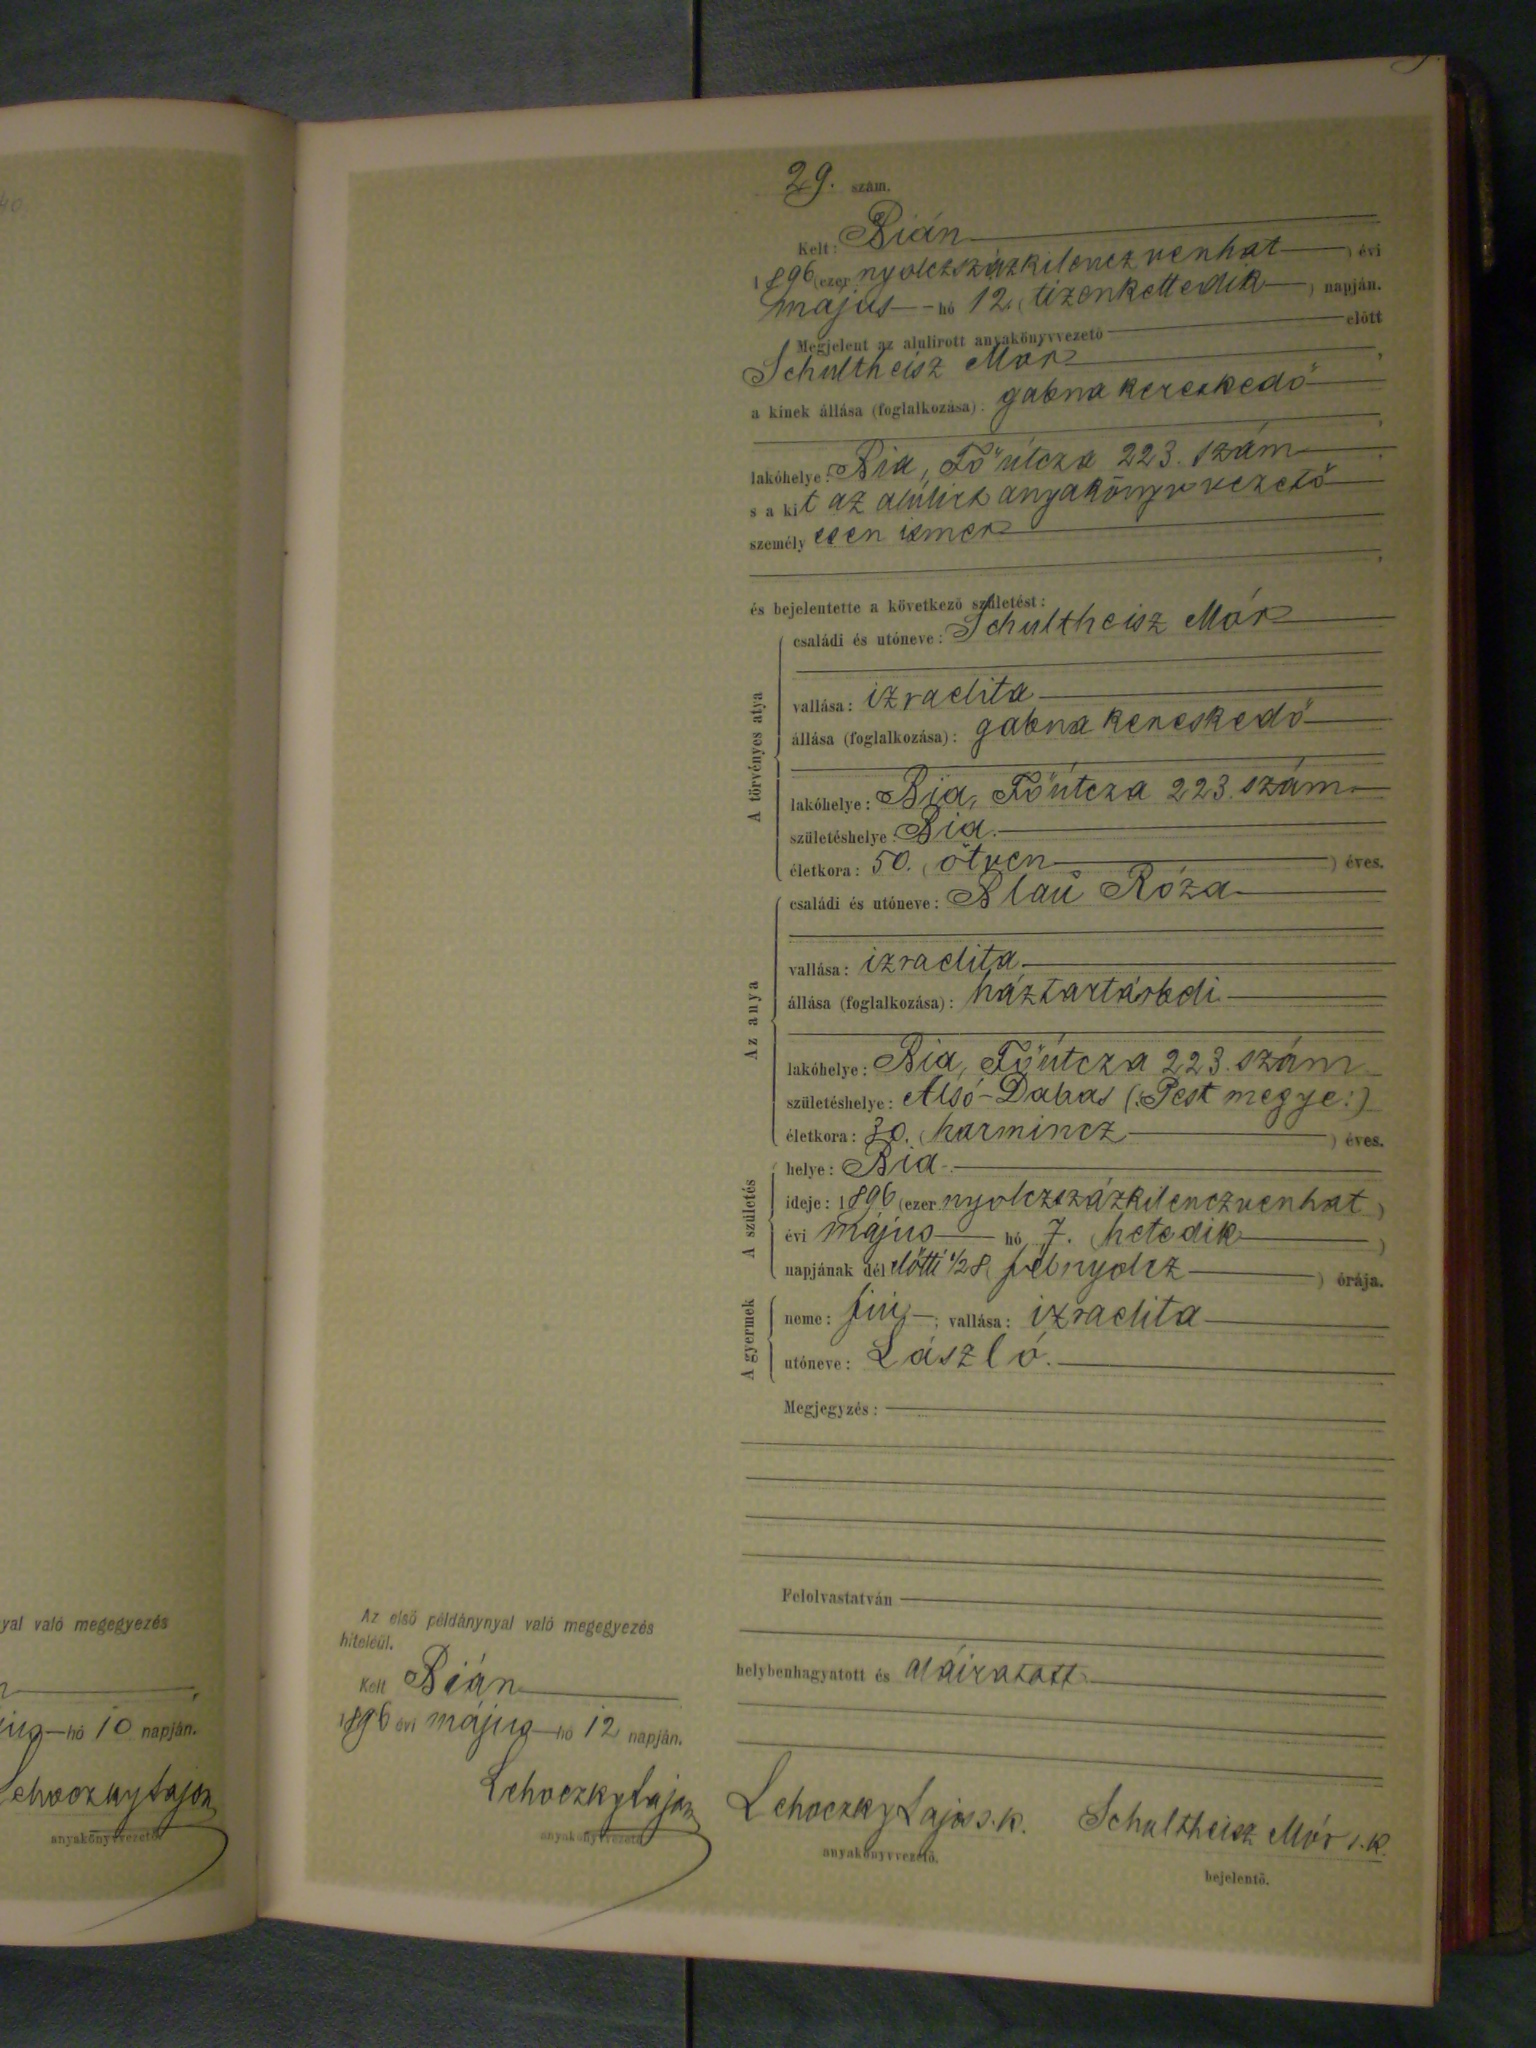 40.
yal való megegyezés
hó 10 napján.
Lehoczky Lajos
anyakönyvvezető.
29. szám.
Kelt: Bián
1896 (ezer nyolczszázkilenczvenhat ) évi
május hó 12. ( tizenkettedik ) napján.
Megjelent az alulirott anyakönyvvezető előtt
Schultheisz Mór ,
a kinek állása (foglalkozása): gabna kereskedő
,
lakóhelye: Bia, Főútcza 223. szám ,
s a kit az alúlirt anyakönyvvezető
személy esen ismer
,
és bejelentette a következő születést:
A törvényes atya
családi és utóneve: Schultheisz Mór
vallása: izraelita
állása (foglalkozása): gabna kereskedő
lakóhelye: Bia, Főútcza 223. szám
születéshelye: Bia.
életkora: 50. ( ötven ) éves.
Az anya
családi és utóneve: Blau Róza
vallása: izraelita
állása (foglalkozása): háztartásbeli
lakóhelye: Bia, Főútcza 223. szám
születéshelye: Alsó-Dabas (:Pest megye:)
életkora: 30. ( harmincz ) éves.
A születés
helye: Bia
ideje: 1896 (ezer nyolczszázkilenczvenhat )
évi május hó 7. ( hetedik )
napjának dél előtti 1/2 8 ( félnyolcz ) órája.
A gyermek
neme: fiú ; vallása: izraelita
utóneve: László.
Megjegyzés:
Felolvastatván
helybenhagyatott és aláiratott
Lehoczky Lajos s.k. Schultheisz Mór s.k.
anyakönyvvezető. bejelentő.
Az első példánynyal való megegyezés
hiteléül.
Kelt Bián
1896 évi május hó 12 napján.
Lehoczky Lajos
anyakönyvvezető